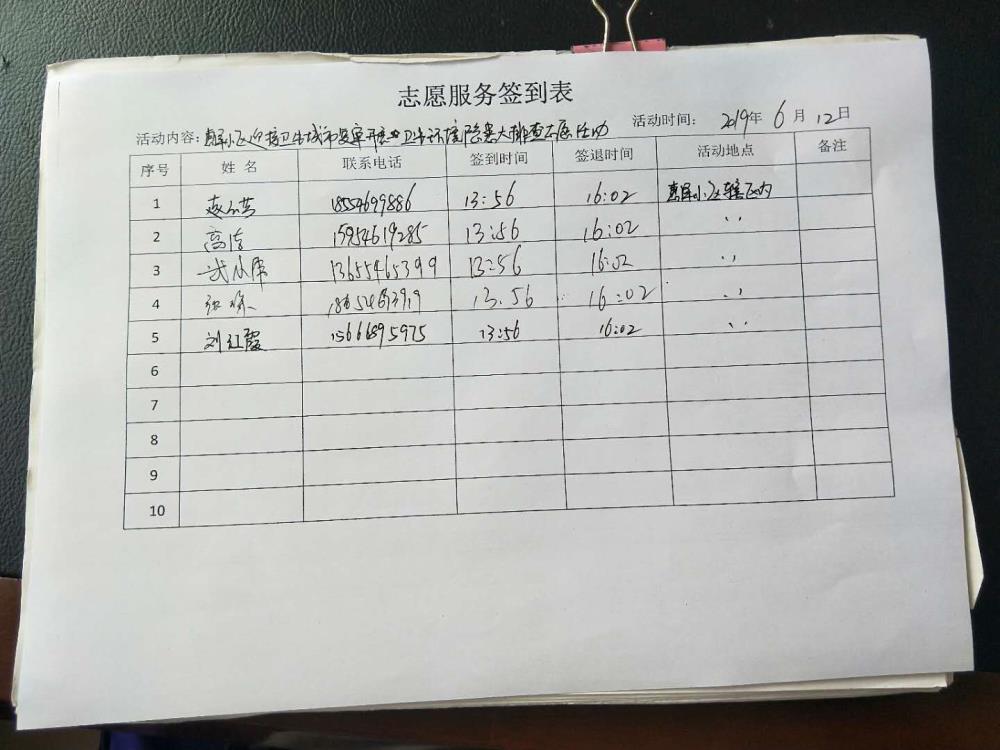 志愿服务签到表
活动时间: 2019年 6 月 12 日
活动内容: 小区迎接卫生城市复审开展卫生环境隐患大排查志愿活动
序号 姓名 联系电话 签到时间 签退时间 活动地点 备注
1 18554699886 13:56 16:02 小区辖区内
2 高洁 15954619285 13:56 16:02 ,,
3 13655465399 13:56 16:02 ,,
4 13.56 16:02 ,,
5 刘红霞 15666895975 13:56 16:02 ,,
6
7
8
9
10